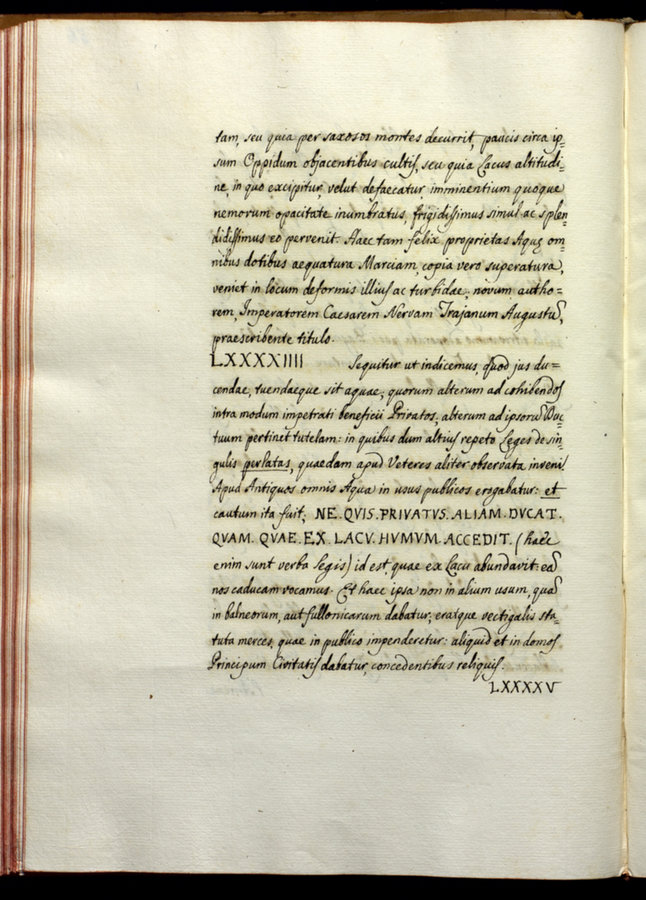 tam, seu quia per saxosos montes decurrit, paucis circa ip=
sum Oppidum objacentibus cultis, seu quia Lacus altitudi=
ne, in quo excipitur, velut defaecatur imminentium quoque
nemorum opacitate inumbratus, frigidissimus simul ac splen=
didissimus eo pervenit. Haec tam felix proprietas Aquę om=
nibus dotibus aequatura Marciam, copia vero superatura,
veniet in locum deformis illius ac turbidae, novum autho=
rem, Imperatorem Caesarem Nervam Trajanum Augustũ,
praescribente titulo.
LXXXXIIII Sequitur ut indicemus, quod jus du=
cendae, tuendaeque sit aquae, quorum alterum ad cohibendos
intra modum impetrati beneficii Privatos, alterum ad ipsorũ Duc=
tuum pertinet tutelam: in quibus dum altius repeto Leges de sin=
gulis perlatas, quaedam apud Veteres aliter observata inveni.
Apud Antiquos omnis Aqua in usus publicos erogabatur: et
cautum ita fuit; NE.QVIS.PRIVATVS.ALIAM.DVCAT.
QVAM.QVAE.EX.LACV.HVMVM.ACCEDIT. (haec
enim sunt verba Legis) id est, quae ex Lacu abundavit: eã
nos caducam vocamus. Et haec ipsa non in alium usum, quã
in balneorum, aut fullonicarum dabatur; eratque vectigalis sta=
tuta merces, quae in publico impenderetur: aliquid et in domos
Principum Civitatis dabatur, concedentibus reliquis.
LXXXXV